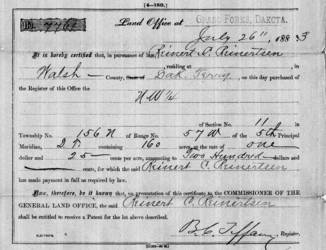 [4—189.]
No. 7761
Land Office at GRAND FORKS, DAKOTA.
July 26", 1883
It is hereby certified, that, in pursuance of law Reinert C. Reinertsen
, residing at , in
Walsh — County, Dak. Terry, on this day purchased
of the Register of this Office the
NW ¼
of Section No. 11, in
Township No. 156 N of Range No. 57 W of the 5th Principal
Meridian, D.T. containing 160 acres, at the rate of one
dollar and 25 cents per acre, amounting to Two Hundred dollars and
cents, for which the said Reinert C. Reinertsen
has made payment in full as required by law.
Now, therefore, be it known, that, on presentation of this certificate to the COMMISSIONER OF THE
GENERAL LAND OFFICE, the said Reinert C. Reinertsen
shall be entitled to receive a Patent for the lot above described.
B.C. Tiffany, Register.